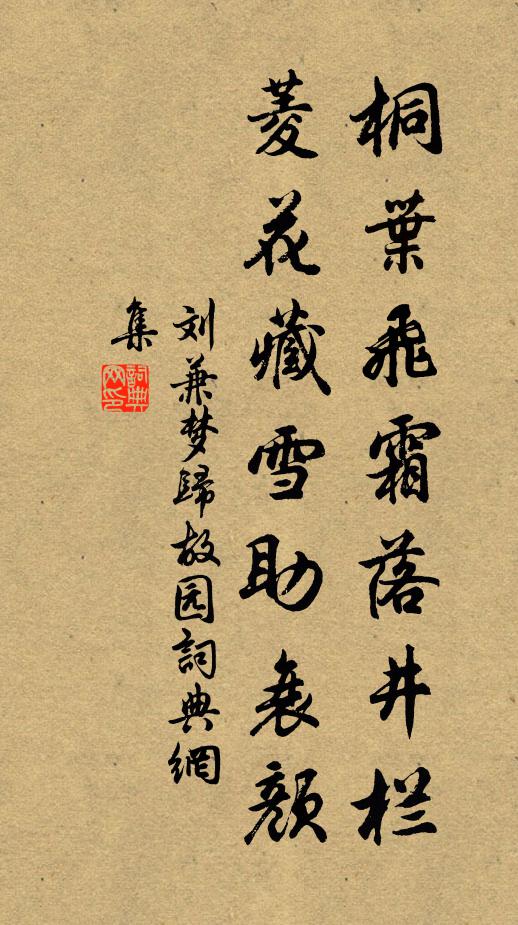 桐葉飛霜落井栏
菱花藏雪助衰颜
刘兼梦歸故园詞典網
集
詞典网印